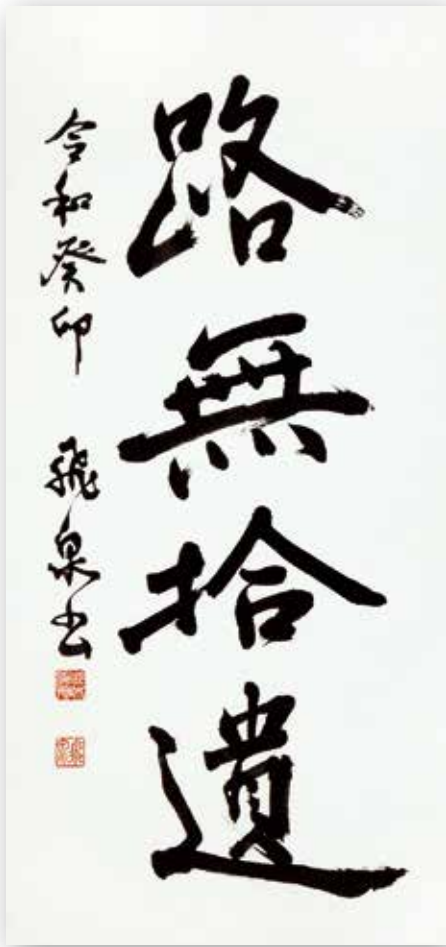 路無拾遺
令和癸卯 飛泉书